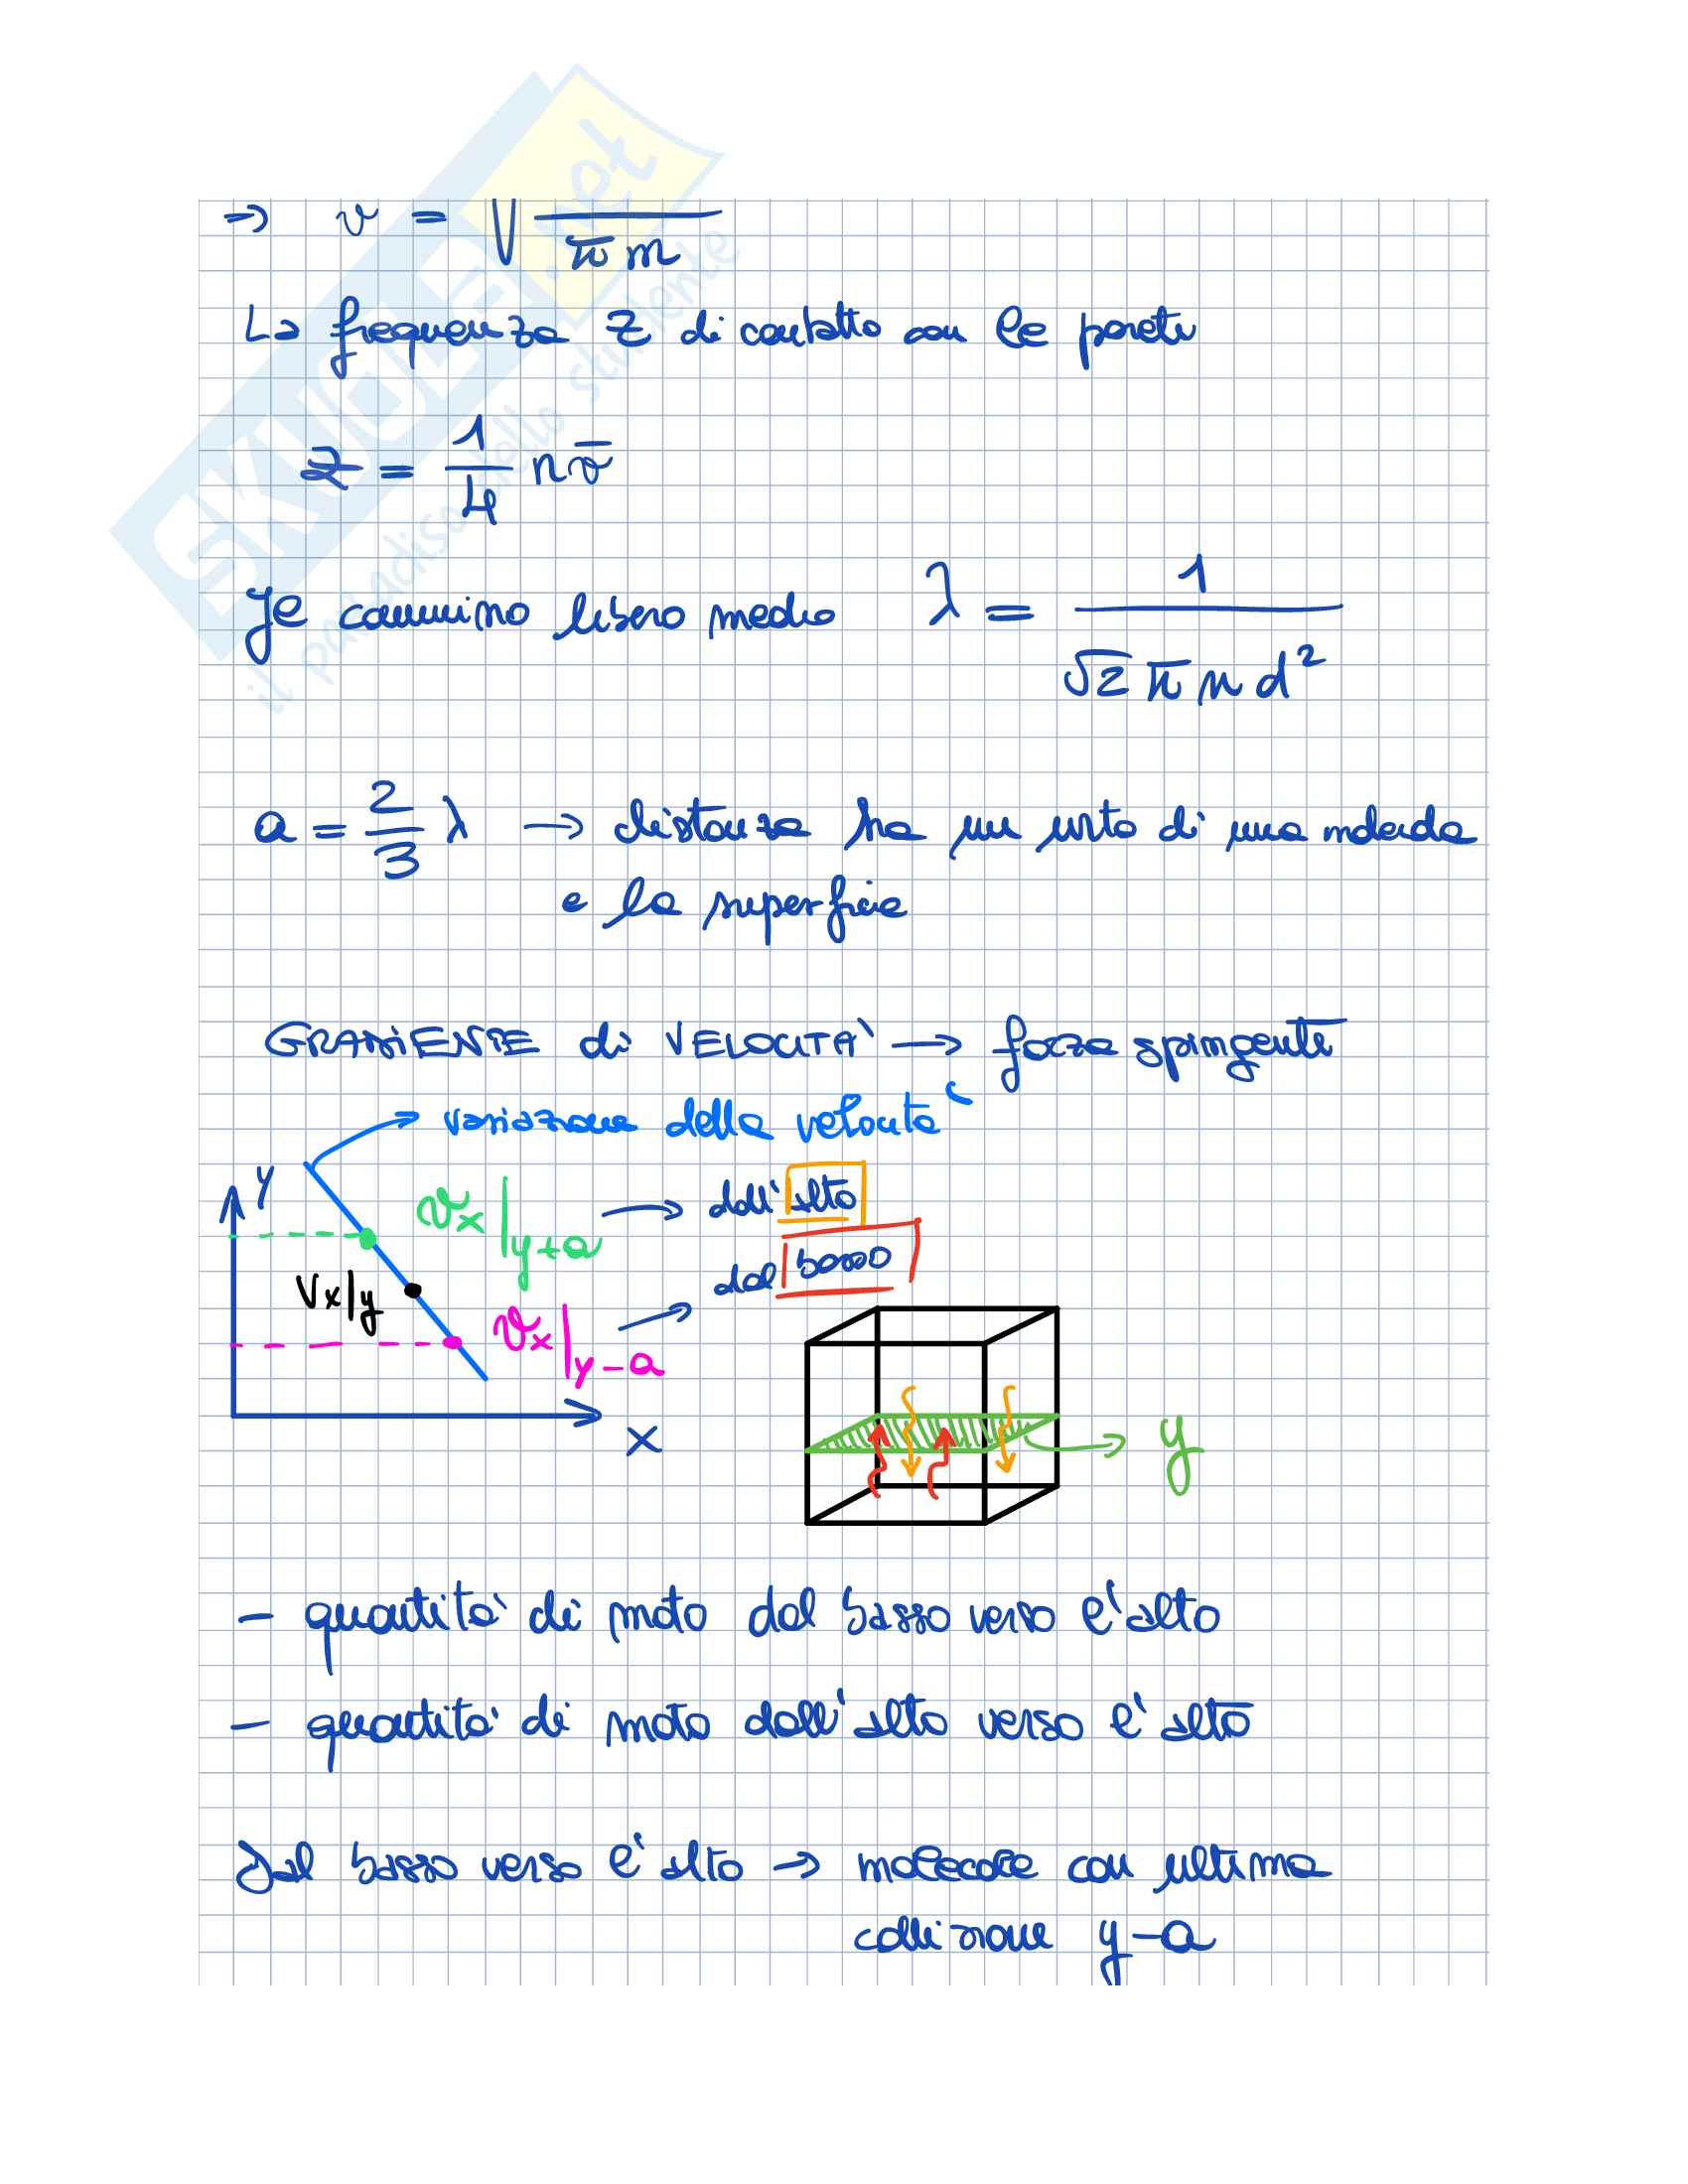 ⇒ v = √ / πm
La frequenza Z di contatto con le pareti
Z = 1/4 n v̄
Il cammino libero medio λ = 1 / √2 π n d²
a = 2/3 λ → distanza tra un urto di una molecola
e la superficie
GRADIENTE di VELOCITÀ → forza spingente
variazione della velocità
y
vx|y+a → dall'alto
dal basso
Vx|y
vx|y-a
x
y
- quantità di moto dal basso verso l'alto
- quantità di moto dall'alto verso l'alto
Dal basso verso l'alto → molecole con ultima
collisione y-a
SKUOLA.net
il paradiso dello studente